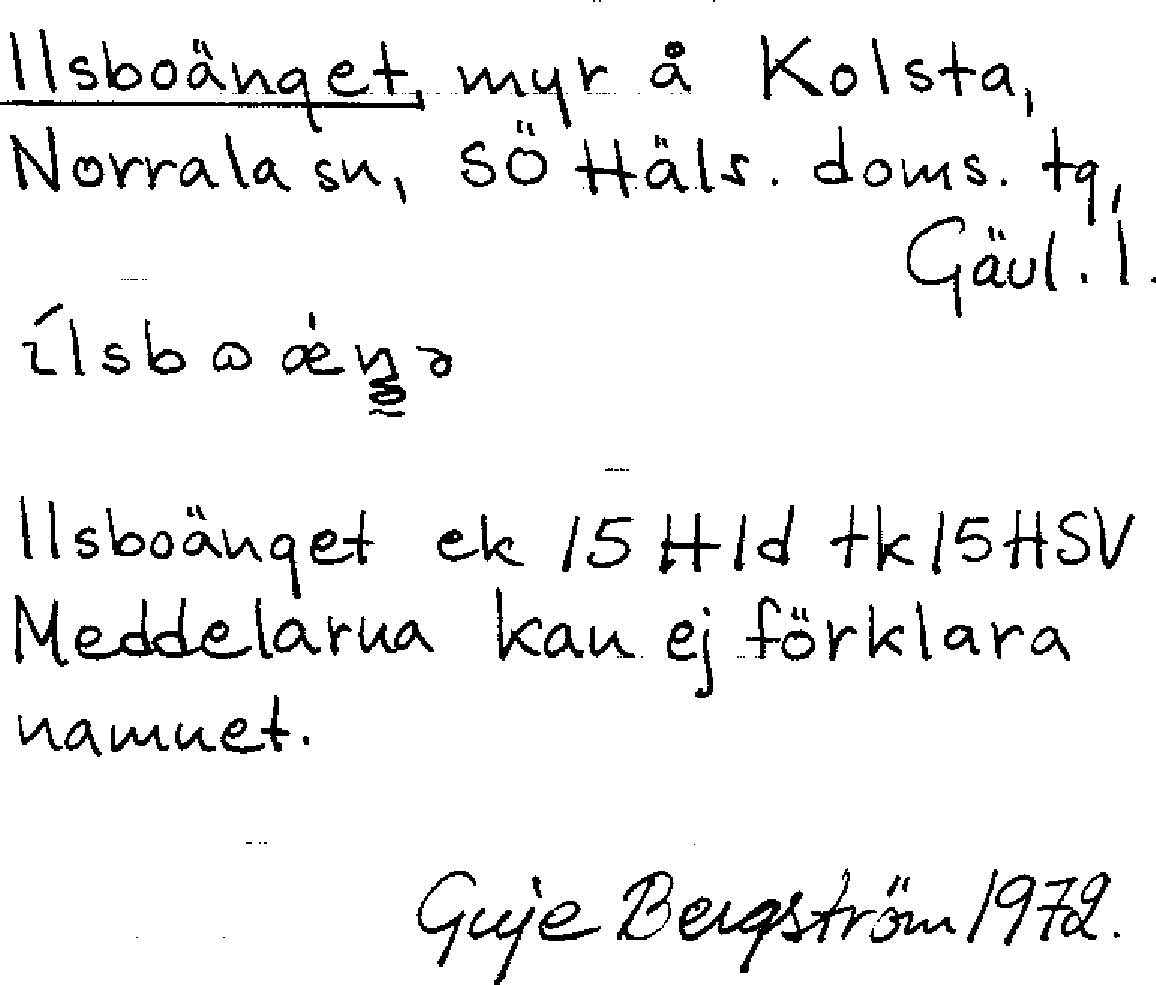 Ilsboänget, myr å Kolsta,
Norrala sn, SÖ Häls. doms. tg,
Gävl. l.
Ilsboänget ek 15 Hld tk 15HSV
Meddelarna kan ej förklara
namnet.
Guje Bergström 1972.